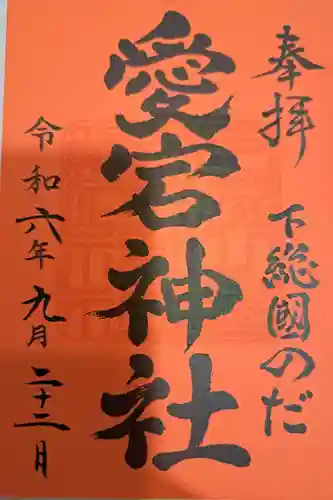 奉拝
下総國のだ
愛宕神社
令和六年九月二十二月